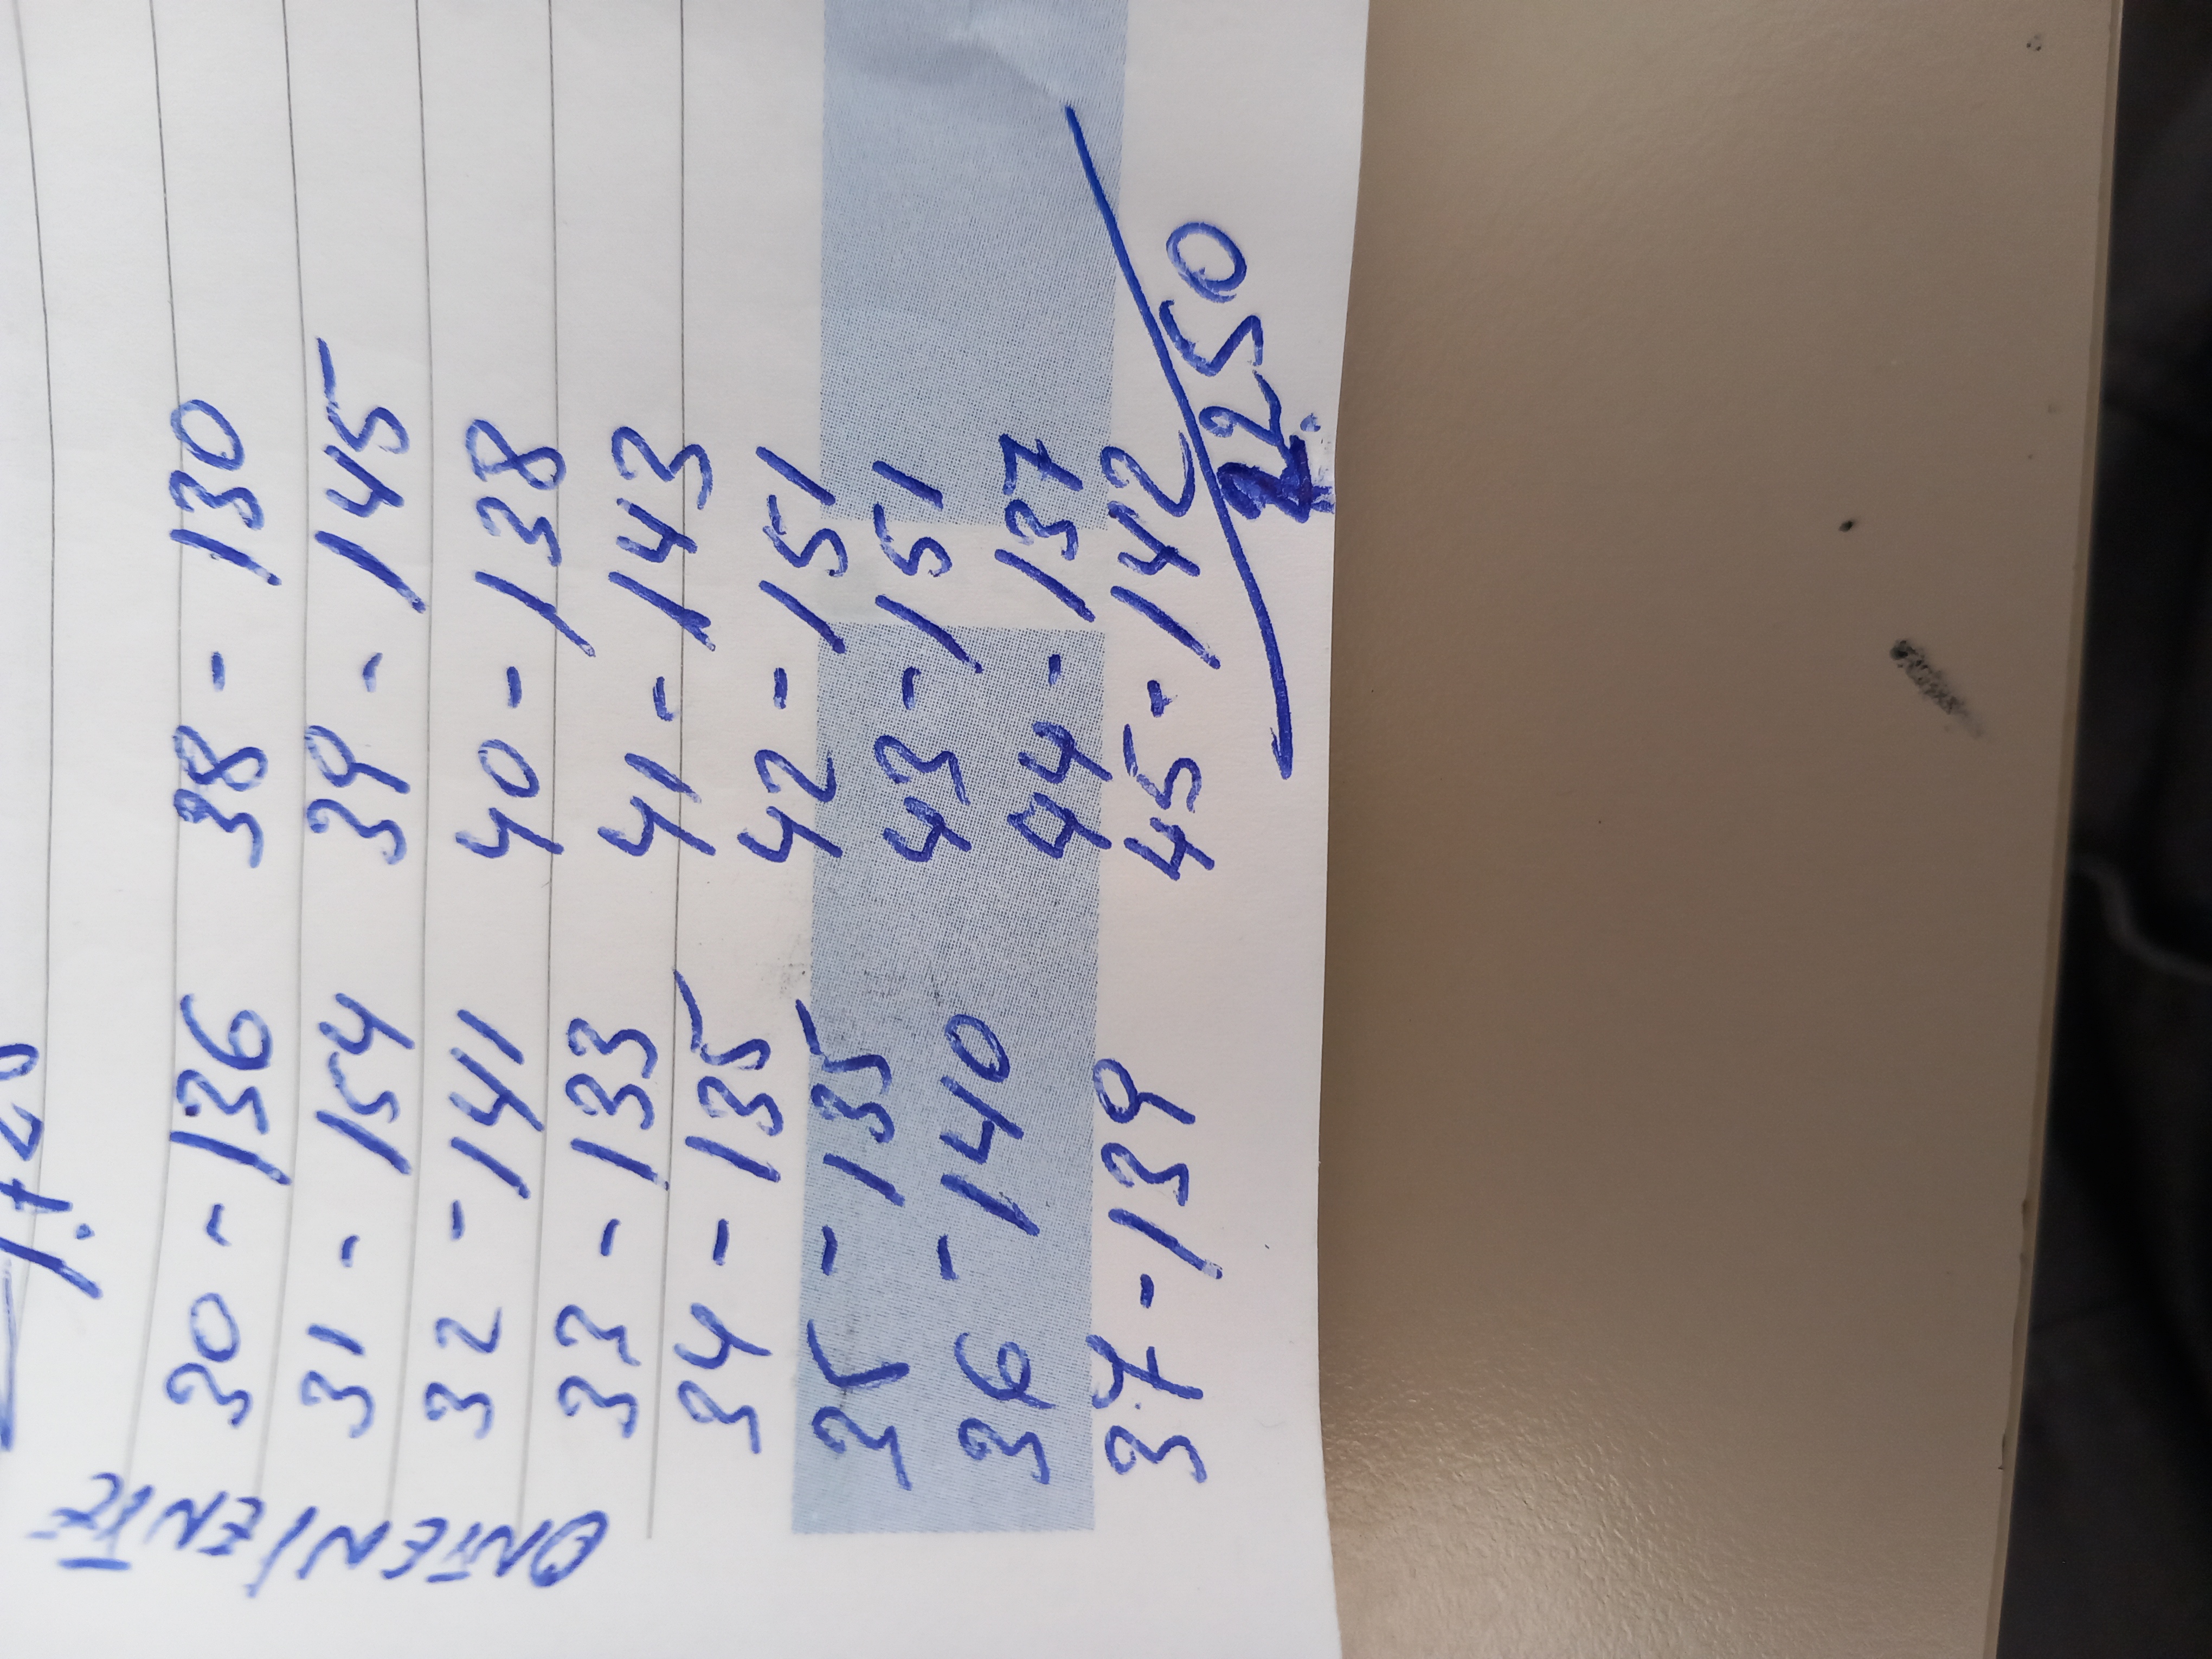 ONTENIENTE
30 - 136 38 - 130
31 - 154 39 - 145
32 - 141 40 - 138
33 - 133 41 - 143
34 - 135 42 - 151
35 - 135 43 - 151
36 - 140 44 - 137
37 - 139 45 - 142
2250